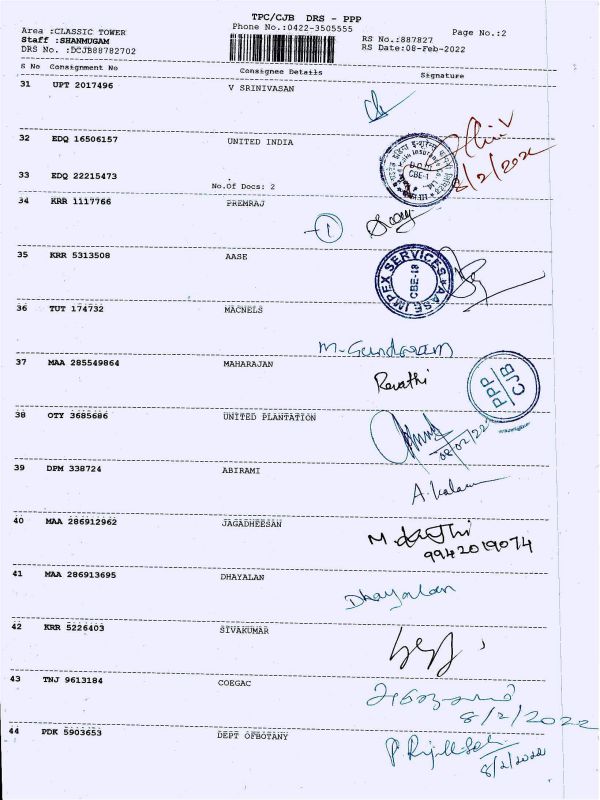 TPC/CJB DRS - PPP
Phone No.:0422-3505555
Area :CLASSIC TOWER
Staff :SHANMUGAM
DRS No. :DCJB88782702
RS No.:887827
RS Date:08-Feb-2022
Page No.:2
S No Consignment No Consignee Details Signature
31 UPT 2017496 V SRINIVASAN
32 EDQ 16506157 UNITED INDIA
8/2/2022
CBE-1
33 EDQ 22215473
No.Of Docs: 2
34 KRR 1117766 PREMRAJ
1
35 KRR 5313508 AASE
AASE IMPEX SERVICES
CBE-18
36 TUT 174732 MACNELS
M. Sundaram
37 MAA 285549864 MAHARAJAN
Revathi
PPP
CJB
38 OTY 3685686 UNITED PLANTATION
08/02/22
39 DPM 338724 ABIRAMI
40 MAA 286912962 JAGADHEESAN
9942019074
41 MAA 286913695 DHAYALAN
Dhayalan
42 KRR 5226403 SIVAKUMAR
43 TNJ 9613184 COEGAC
8/2/2022
44 PDK 5903653 DEPT OFBOTANY
8/2/2022